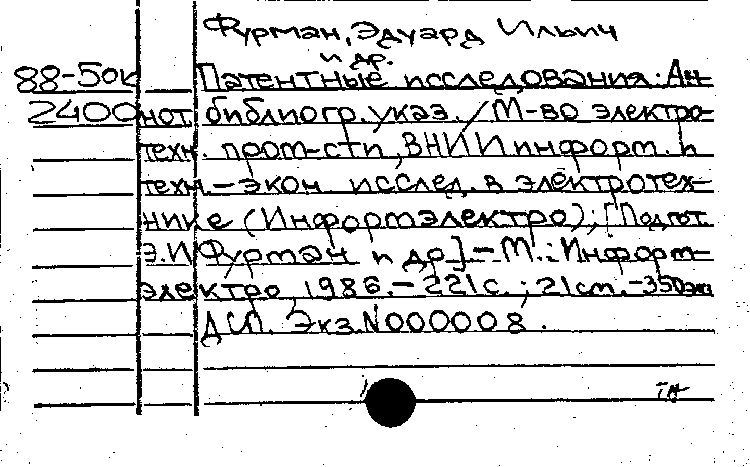 Фурман, Эдуард Ильич
и др.
88-50к Патентные исследования: Ан-
2400 нот. библиогр. указ. / М-во электро-
техн. пром-сти, ВНИИ информ. и
техн.-экон. исслед. в электротех-
нике (Информэлектро); [Подгот.
Э.И. Фурман и др.].-М.: Информ-
электро, 1986.-221с.; 21см.-350экз.
ДСП. Экз.N000008.